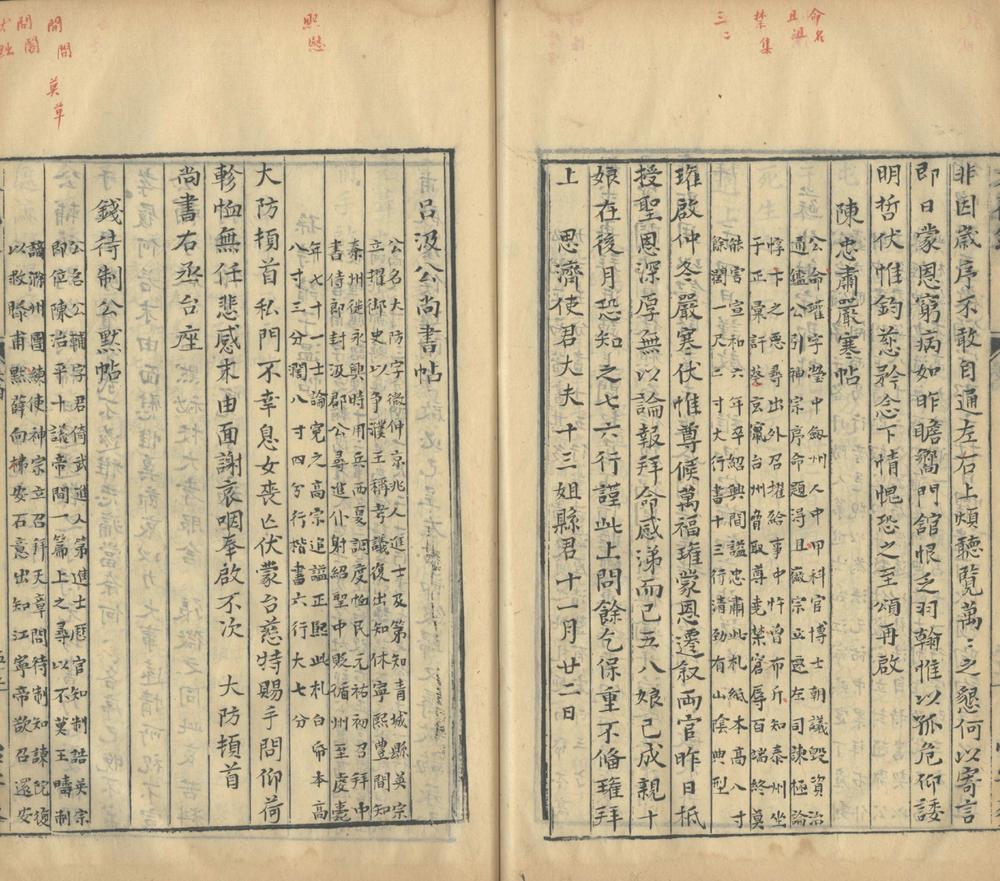 命名
且沮
禁集
三二
非因歲序不敢自通左右上煩聽覽萬〻之懇何以寄言
即日蒙恩窮病如昨瞻嚮門館恨乏羽翰惟以孤危仰諉
明哲伏惟鈞慈矜念下情愧恐之至頌再啟
陳忠肅嚴寒帖
公命瓘字瑩中劔州人中甲科官博士朝議毀資治
通鑑公引神宗序命題得且徽宗立遷左司諫極論
惇卞之惡尋出外召擢給事中忤曾布斥知泰州坐
于正彙訐蔡京竄台州脅取尊堯禁窘辱百端終莫
能害宣和六年卒紹興間謚忠肅此札紙本高八寸
餘濶一尺二寸大行書十三行清勁有山陰典型
瓘啟仲冬嚴寒伏惟尊候萬福瓘蒙恩遷叙両官昨日祗
授聖恩深厚無以論報拜命感涕而已五八娘已成親十
娘在後月恐知之七六行謹此上問餘乞保重不脩瓘拜
上　思濟使君大夫十三姐縣君十一月廿二日
熙熈
間間
問闔
莫草
呂汲公尚書帖
公名大防字微仲京兆人進士及第知青城縣英宗
高擢御史以争濮王稱考議復出知休寧熙豐間知
秦州徙永興時用兵西夏調度恤民元祐初召拜中
書侍郎封汲郡公尋進仆射紹聖中貶循州至虔薨
年七十一士論寃之高宗追謚正熈此札白帋本高
八寸三分濶八寸四分行楷書六行大七分
大防頓首私門不幸息女喪亡伏蒙台慈特賜手問仰荷
軫恤無任悲感末由面謝哀咽奉啟不次　大防頓首
尚書右丞台座
錢待制公黙帖
公名公輔字君倚武進人第進士歴官知制誥英宗
即位陳治平十議帝間一篇上之尋以不莫王疇制
謫滁州團練使神宗立召拜天章問待制知諫院復
以救滕甫黙薛向拂安石意出知江寧帝欲召還安